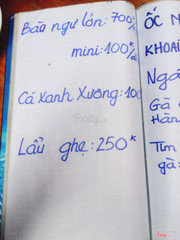 Bào ngư lớn: 700k
mini: 100k
Cá Xanh Xương: 10
Lẩu ghẹ: 250k
Foody
ỐC
KHOAI
Gà
Hàn
Tim
gà: